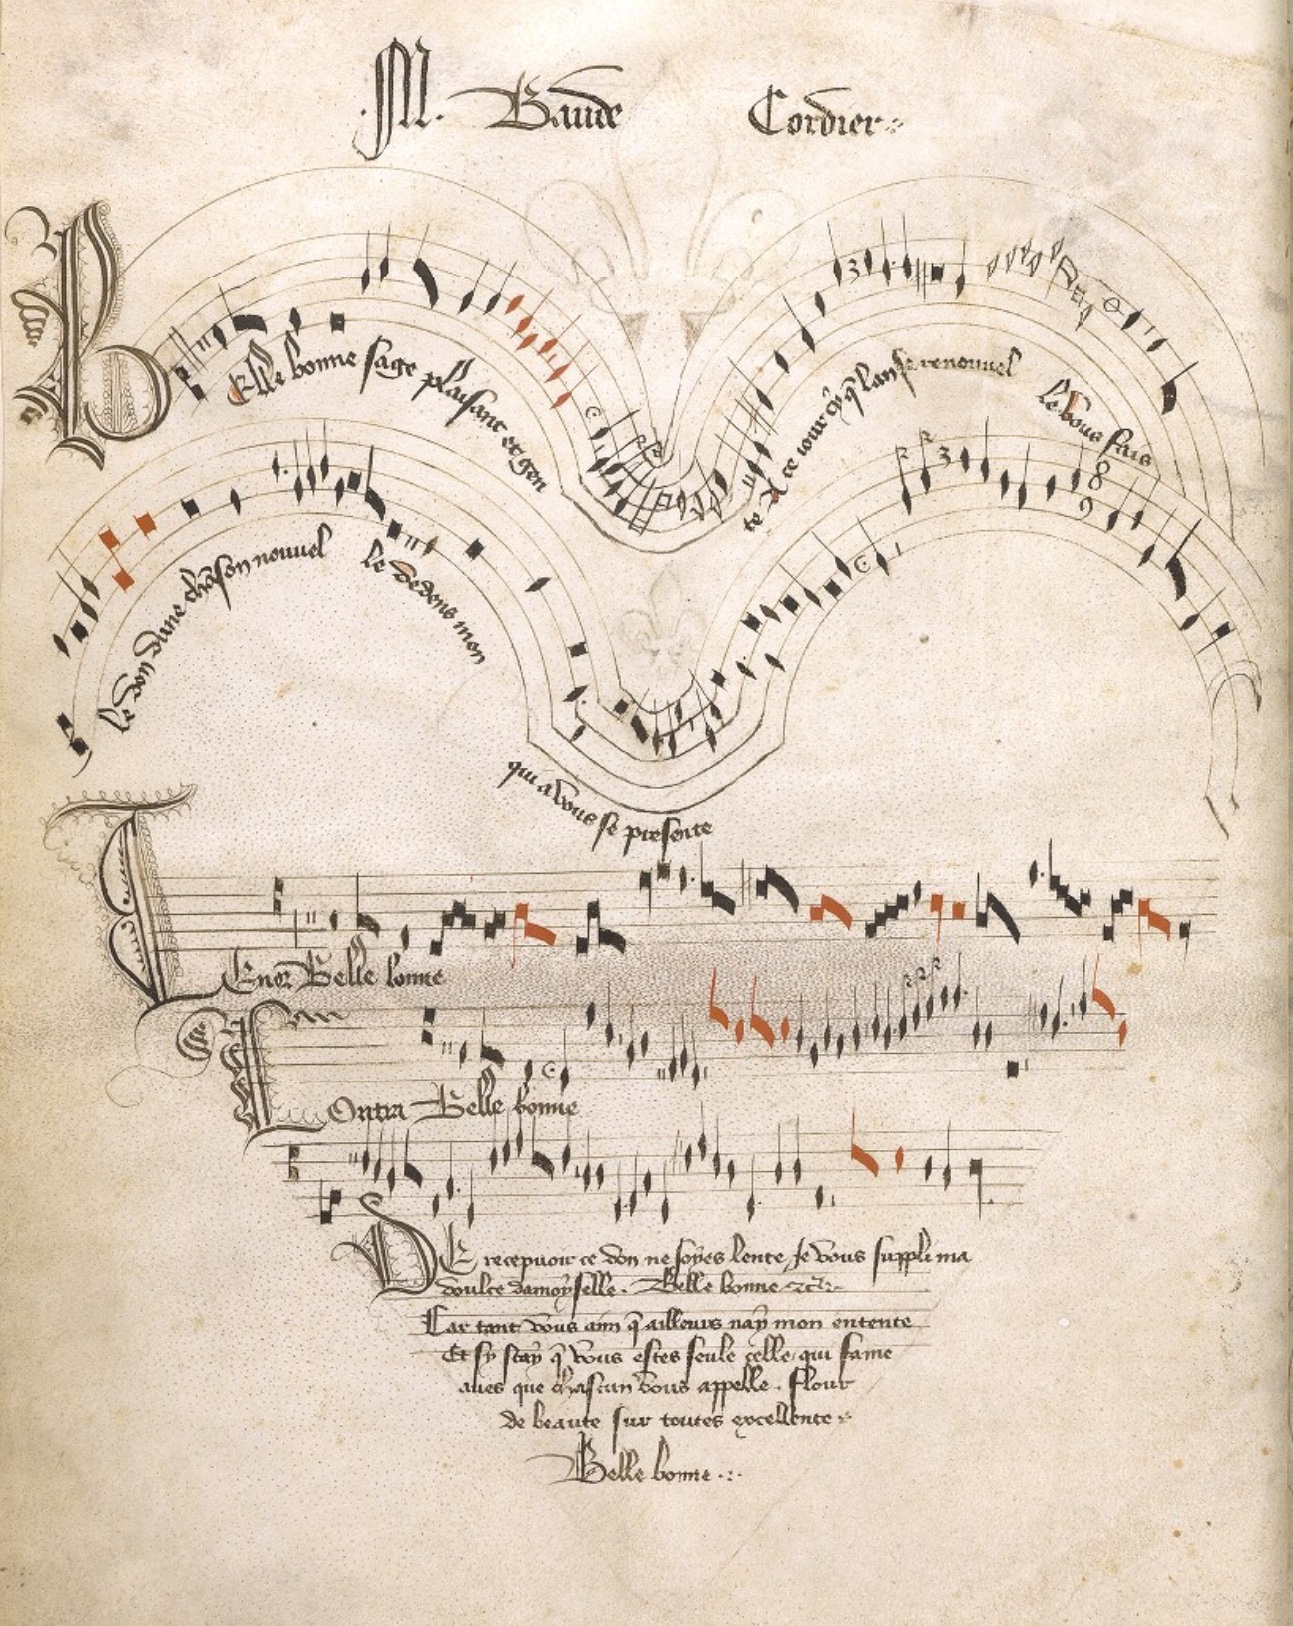 .M. Baude Cordier
BElle bonne sage plaisant et gen
te A ce iour cy q̃ lan se renouvel
le vous fais
le don dune chãson nouvel
le dedens mon
qui a vous se presente
TEnor Belle bonne
COntra Belle bonne
DE recepuoir ce don ne soyes lente Je vous suppli ma
doulce damoyselle. Belle bonne
Car tant vous aim q̃ aillours nay mon entente
Et sy scay q̃ vous estes seule celle qui fame
aues que chascun vous appelle. Flour
de beaute sur toutes excellente
Belle bonne.